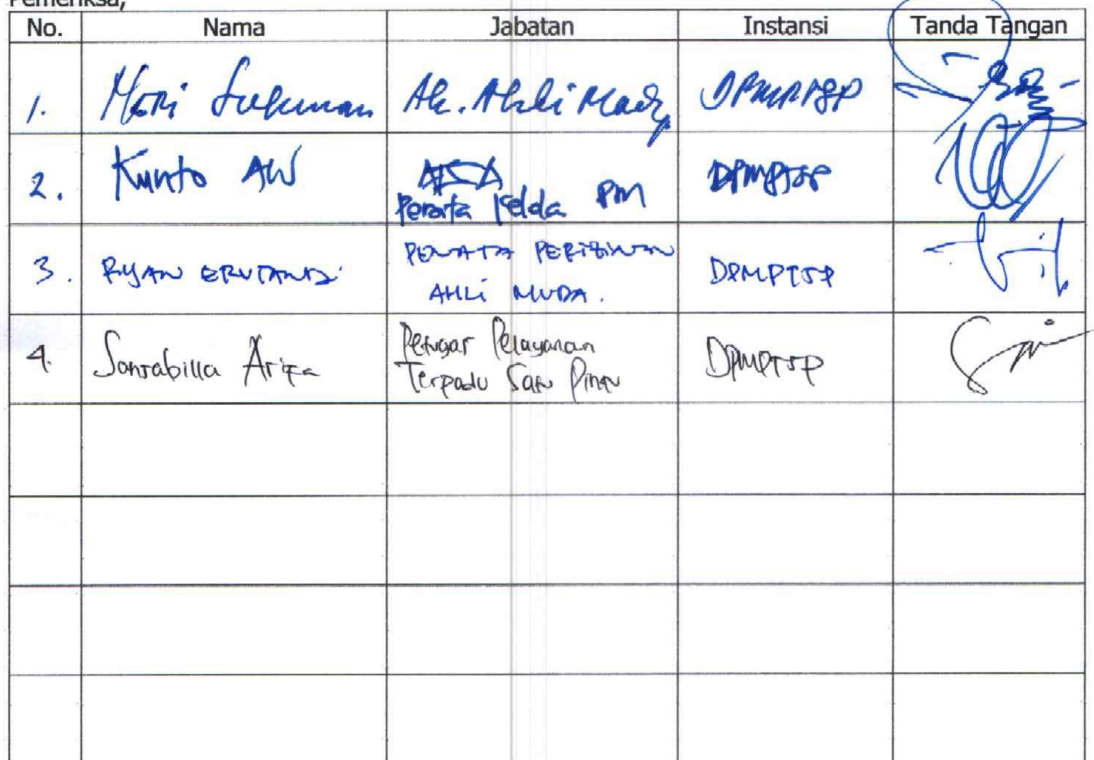 Pemeriksa,
No. Nama Jabatan Instansi Tanda Tangan
1. Heri Sukman Ah. Ahli Mady DPMPTSP
2. Kunto AW Penata Kelola PM DPMPTSP
3. RYAN ERUTANDI PENATA PERIZINAN AHLI MUDA. DPMPTSP
4. Sansabilla Arifa Petugas Pelayanan Terpadu Satu Pintu DPMPTSP